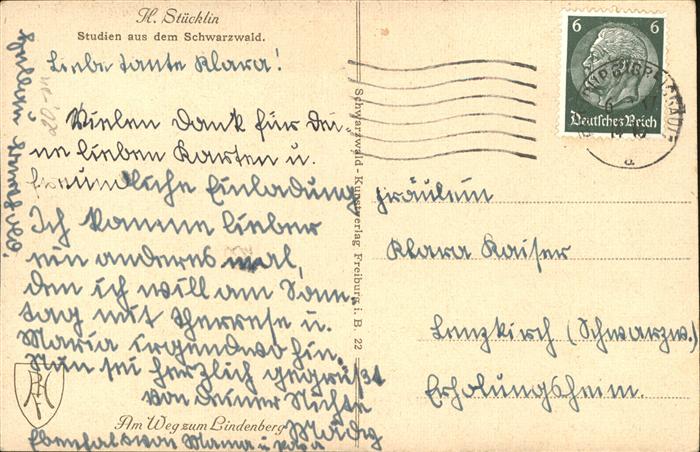 H. Stücklin
Studien aus dem Schwarzwald.
Liebe Tante Klara!
Vielen Dank für dei
ne lieben Karten u.
freundliche Einladung
Ich komme lieber
ein anderes mal,
den ich will am Sonn-
tag mit Therese u.
Maria irgendwo hin.
Nun sei herzlich gegrüßt
von deiner Nichte
Am Weg zum Lindenberg
Ebenfals von Mama u. Papa
Schwarzwald-Kunstverlag Freiburg i. B. 22
6 6
Deutsches Reich
Fräulein
Klara Kaiser
Lenzkirch (Schwarzw.)
Erholungsheim.